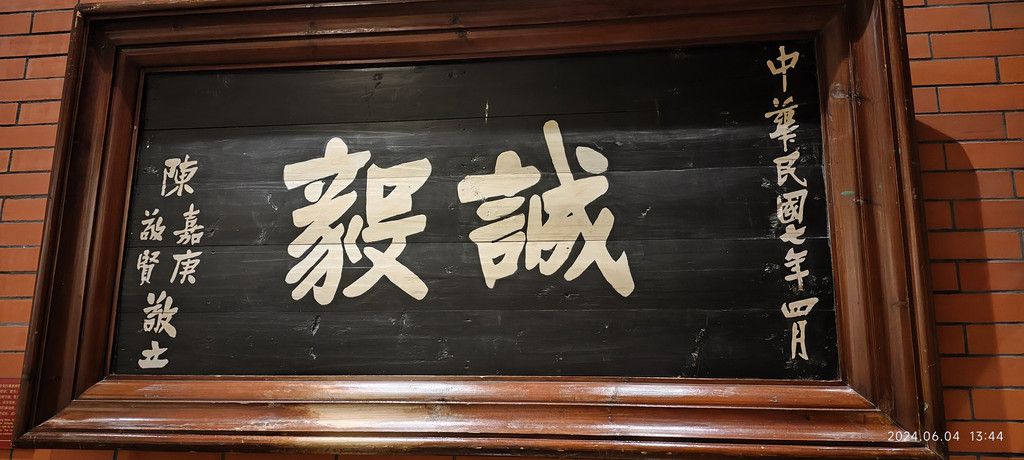 中華民國七年四月
誠毅
陳嘉庚
敬賢
敬立
2024.06.04 13:44